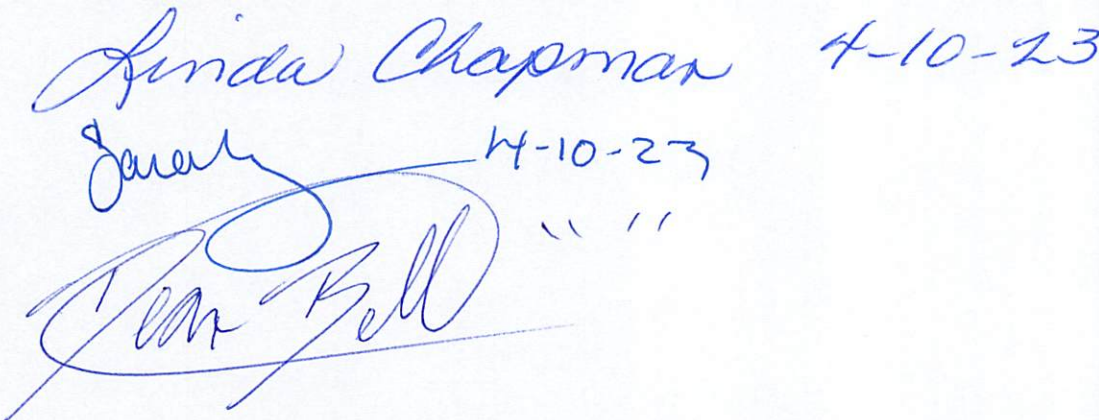 Linda Chapman 4-10-23
4-10-23
Dean Bell " "